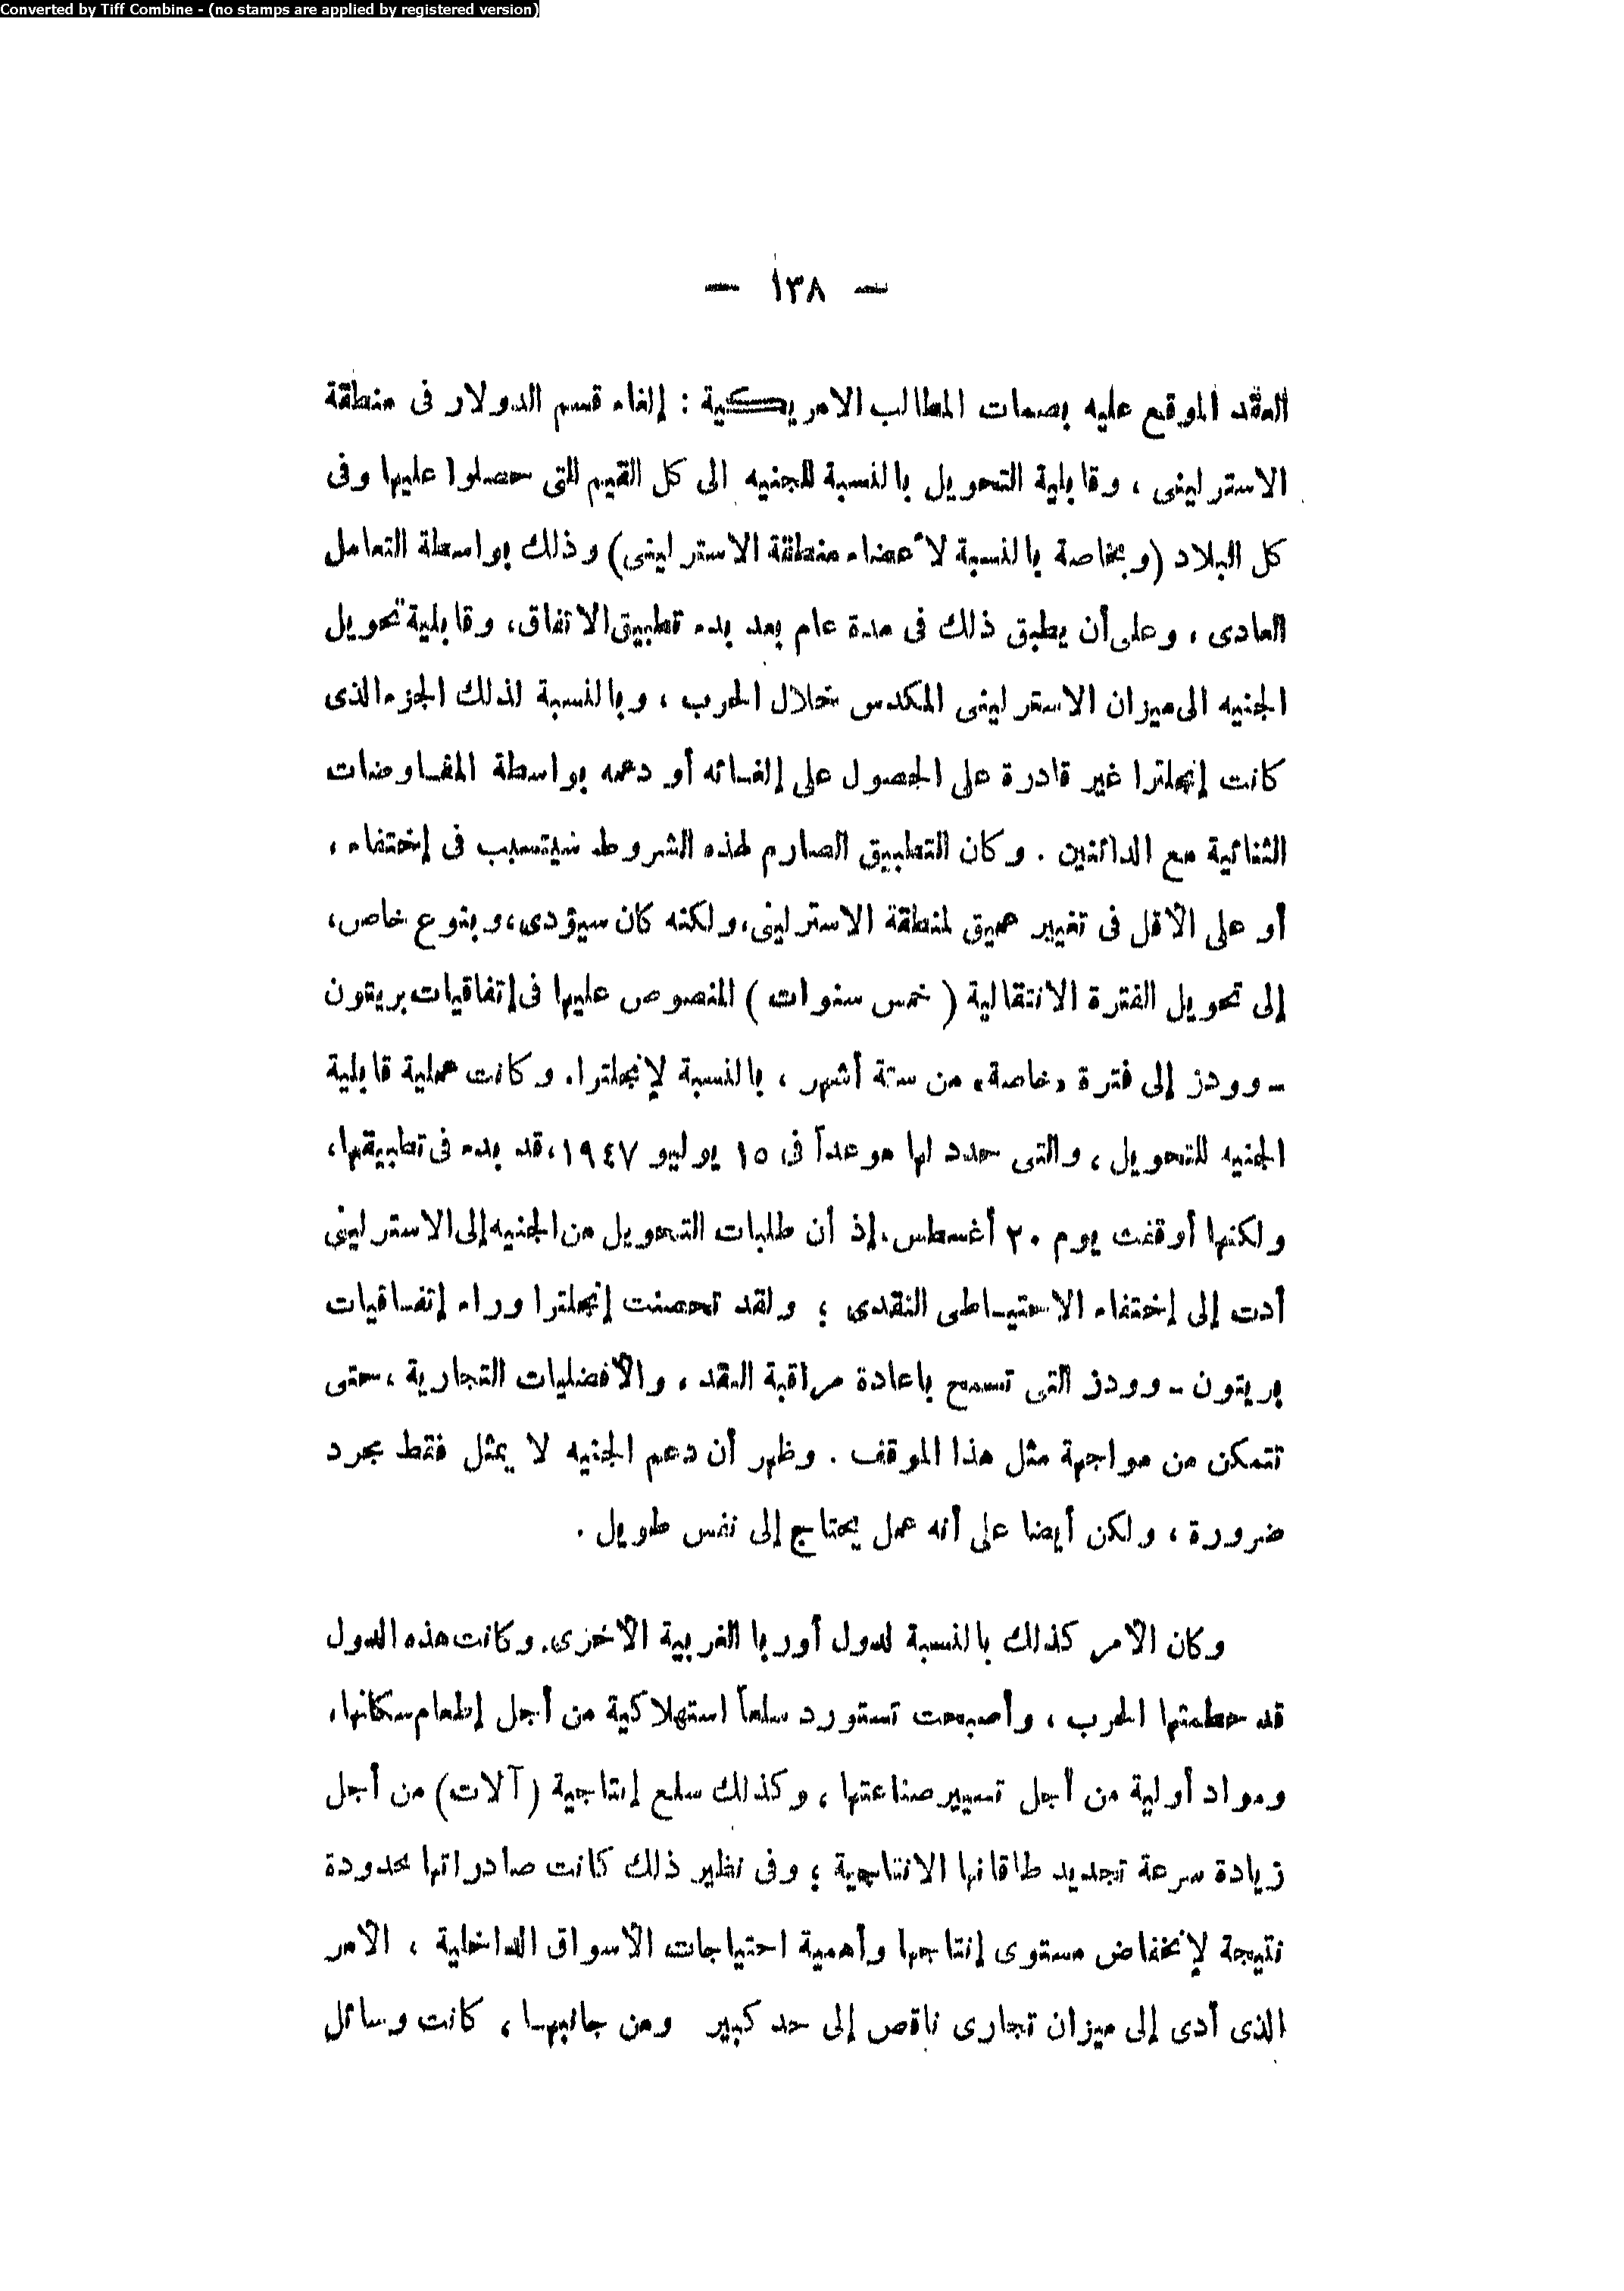 Converted by Tiff Combine - (no stamps are applied by registered version)
— ١٣٨ —
العقد الموقع عليه بصمات المطالب الامريكية : إلغاء قسم الدولار فى منطقة
الاسترلينى ، وقابلية التحويل بالنسبة للجنيه الى كل القيم التى حصلوا عليها وفى
كل البلاد (وبخاصة بالنسبة لأعضاء منطقة الاسترلينى) وذلك بواسطة التعامل
العادى ، وعلى أن يطبق ذلك فى مدة عام بعد بدء تطبيق الاتفاق، وقابلية تحويل
الجنيه الى ميزان الاسترلينى المكدس خلال الحرب ، وبالنسبة لذلك الجزء الذى
كانت إنجلترا غير قادرة على الحصول على إلغائه أو دعمه بواسطة المفاوضات
الثنائية مع الدائنين . وكان التطبيق الصارم لهذه الشروط سيتسبب فى إختفاء ،
أو على الأقل فى تغيير عميق لمنطقة الاسترلينى، ولكنه كان سيؤدى، وبنوع خاص،
إلى تحويل الفترة الانتقالية ( خمس سنوات ) المنصوص عليها فى إتفاقيات بريتون
- وودز إلى فترة «خاصة» من ستة أشهر ، بالنسبة لإنجلترا. وكانت عملية قابلية
الجنيه للتحويل ، والتى حدد لها موعداً فى ١٥ يوليو ١٩٤٧، قد بدء فى تطبيقها،
ولكنها أوقفت يوم ٢٠ أغسطس، إذ أن طلبات التحويل من الجنيه إلى الاسترلينى
أدت إلى إختفاء الاحتياطى النقدى ؛ ولقد تحصنت إنجلترا وراء إتفاقيات
بريتون - وودز التى تسمح باعادة مراقبة النقد ، والأفضليات التجارية ، حتى
تتمكن من مواجهة مثل هذا الموقف . وظهر أن دعم الجنيه لا يمثل فقط مجرد
ضرورة ، ولكن أيضا على أنه عمل يحتاج إلى نفس طويل .
وكان الأمر كذلك بالنسبة لدول أوربا الغربية الأخرى. وكانت هذه الدول
قد حطمتها الحرب ، وأصبحت تستورد سلعاً استهلاكية من أجل إطعام سكانها،
ومواد أولية من أجل تسيير صناعتها ، وكذلك سلع إنتاجية (آلات) من أجل
زيادة سرعة تجديد طاقاتها الانتاجية ؛ وفى نظير ذلك كانت صادراتها محدودة
نتيجة لإنخفاض مستوى إنتاجها وأهمية احتياجات الأسواق الداخلية ، الأمر
الذى أدى إلى ميزان تجارى ناقص إلى حد كبير ومن جانبها ، كانت وسائل